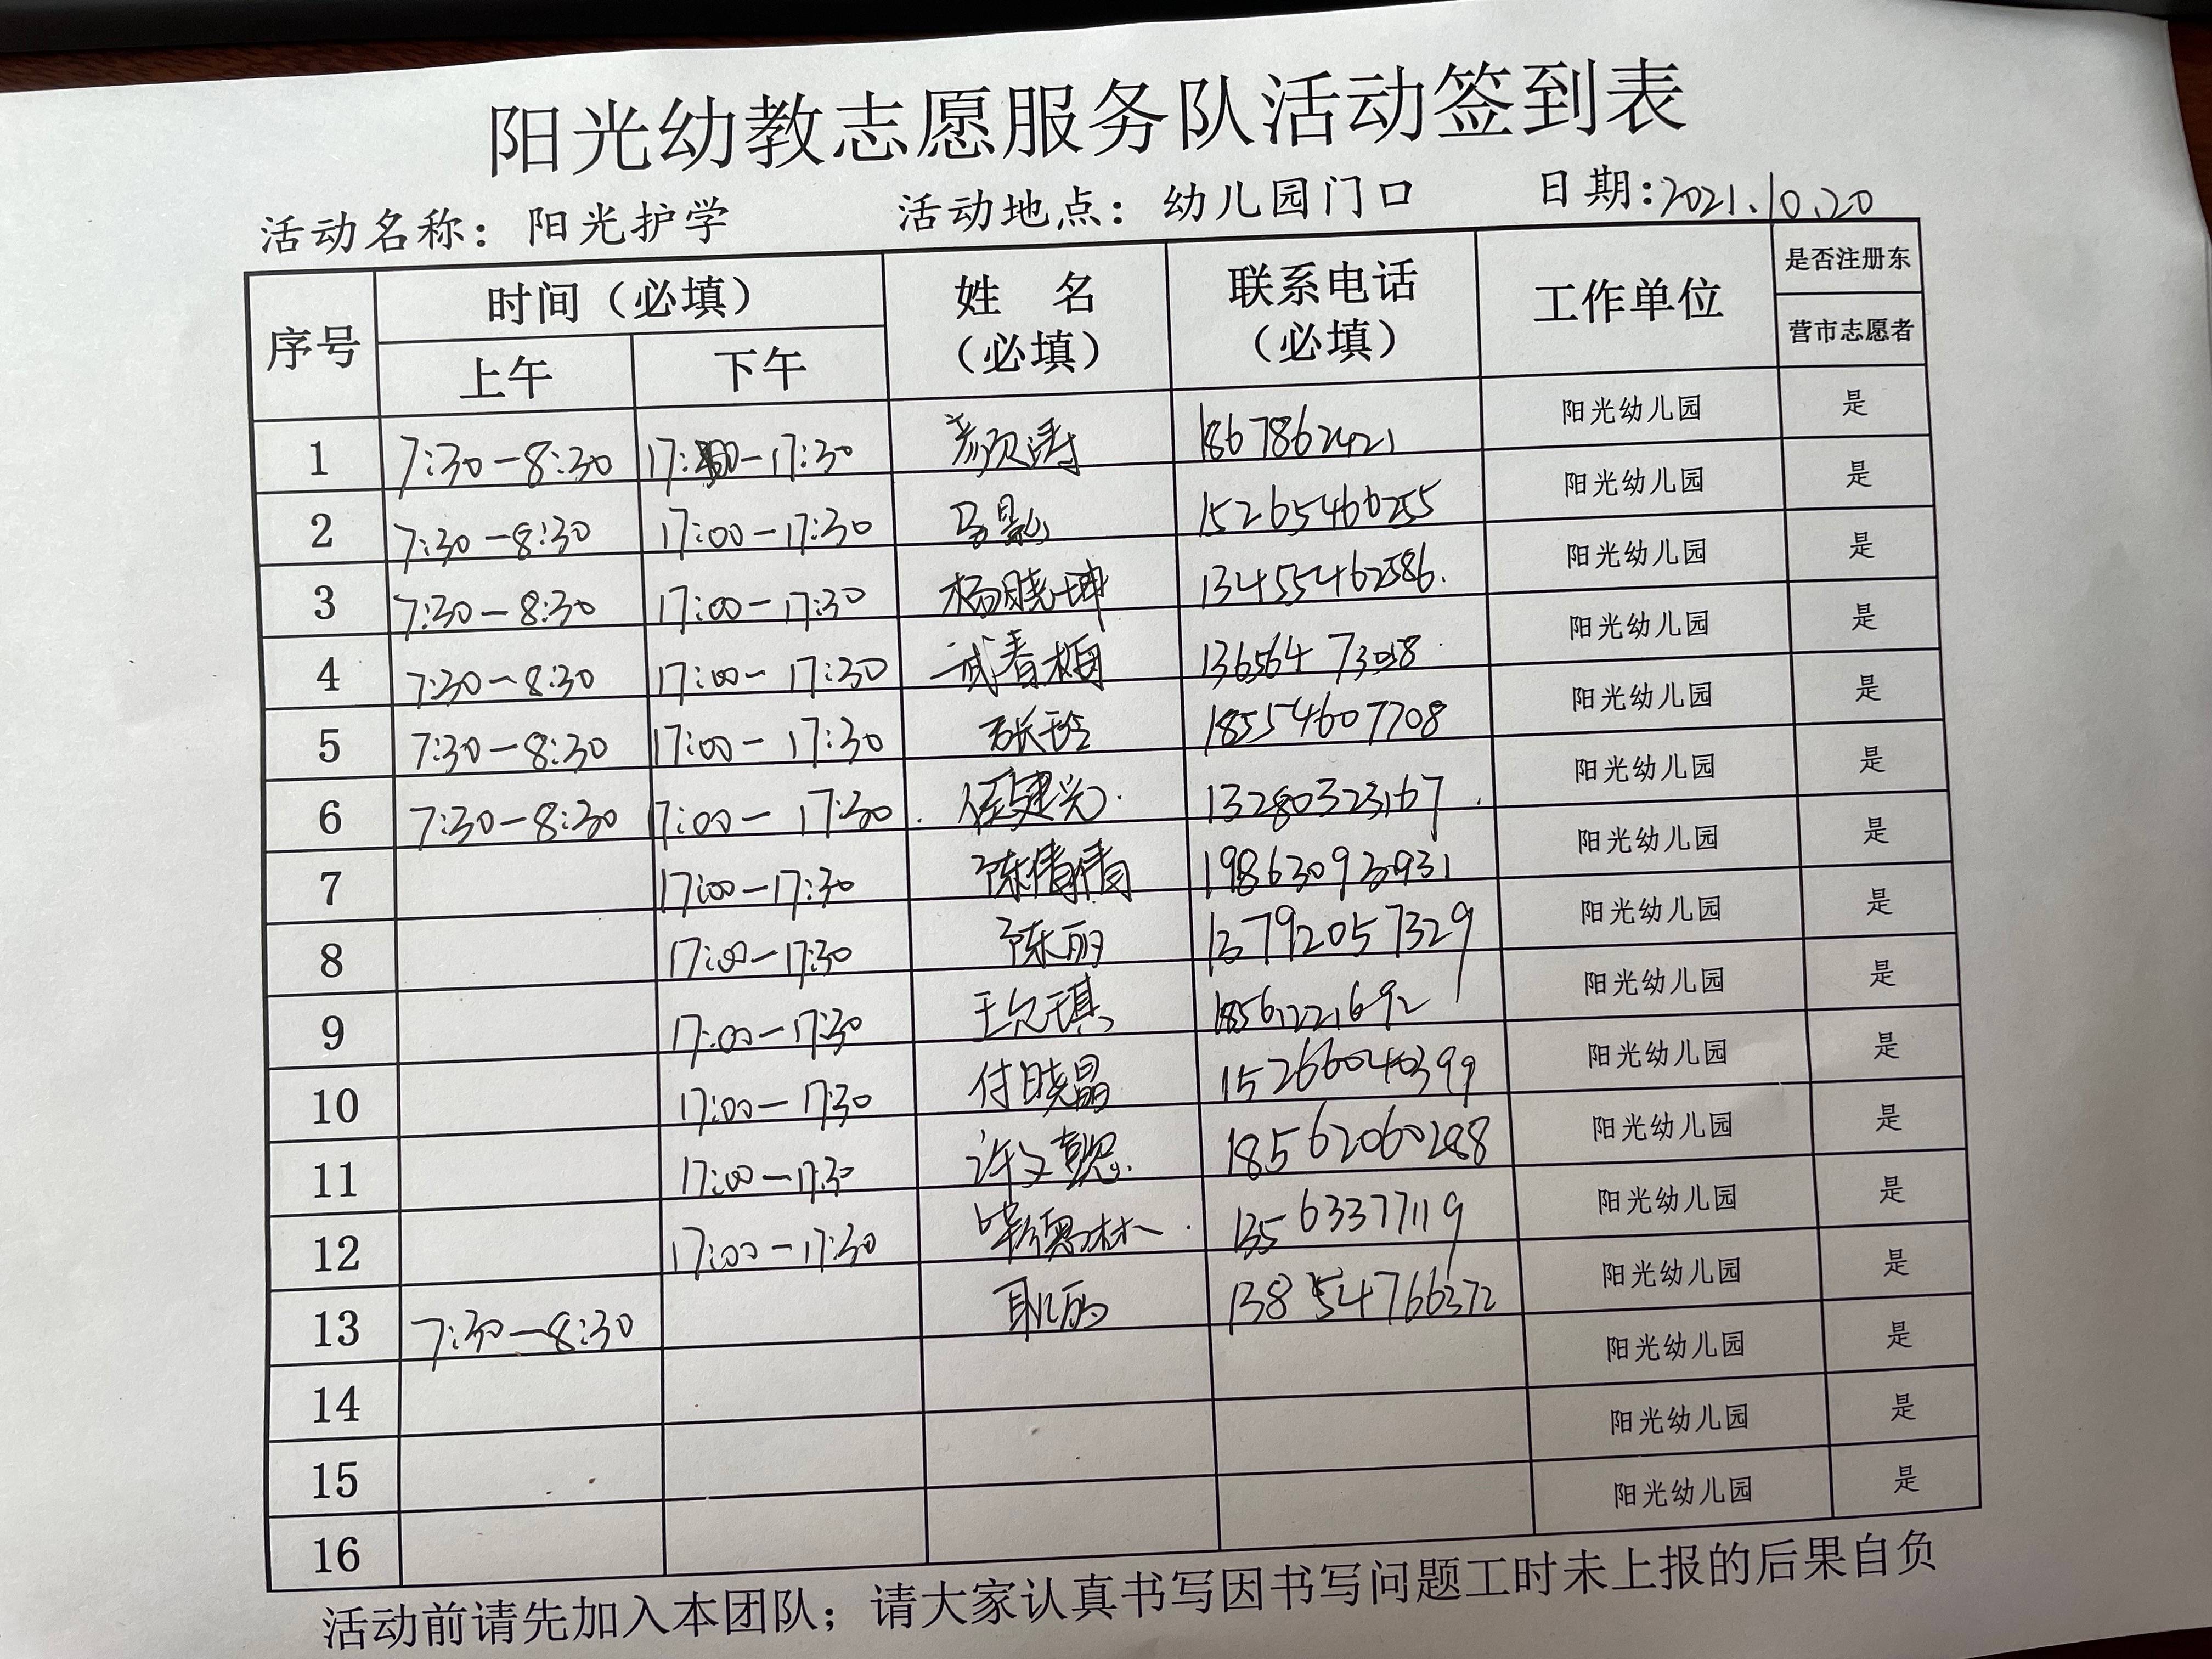 阳光幼教志愿服务队活动签到表
活动名称：阳光护学 活动地点：幼儿园门口 日期：2021.10.20
序号 时间（必填） 姓 名（必填） 联系电话（必填） 工作单位 是否注册东营市志愿者
上午 下午
1 7:30-8:30 17:00-17:30 1867862421 阳光幼儿园 是
2 7:30-8:30 17:00-17:30 马影 15265460255 阳光幼儿园 是
3 7:30-8:30 17:00-17:30 杨晓坤 13455462586. 阳光幼儿园 是
4 7:30-8:30 17:00-17:30 武春梅 阳光幼儿园 是
5 7:30-8:30 17:00-17:30 张玲 18554607708 阳光幼儿园 是
6 7:30-8:30 17:00-17:30 13280323167 阳光幼儿园 是
7 17:00-17:30 陈倩倩 19863093931 阳光幼儿园 是
8 17:00-17:30 陈丽 13792057329 阳光幼儿园 是
9 17:00-17:30 王允琪 18561221692 阳光幼儿园 是
10 17:00-17:30 付晓晶 15266040399 阳光幼儿园 是
11 17:00-17:30 许文懿 18562060288 阳光幼儿园 是
12 17:00-17:30 13563377119 阳光幼儿园 是
13 7:30-8:30 耿丽 13854766372 阳光幼儿园 是
14 阳光幼儿园 是
15 阳光幼儿园 是
16 阳光幼儿园 是
活动前请先加入本团队；请大家认真书写因书写问题工时未上报的后果自负